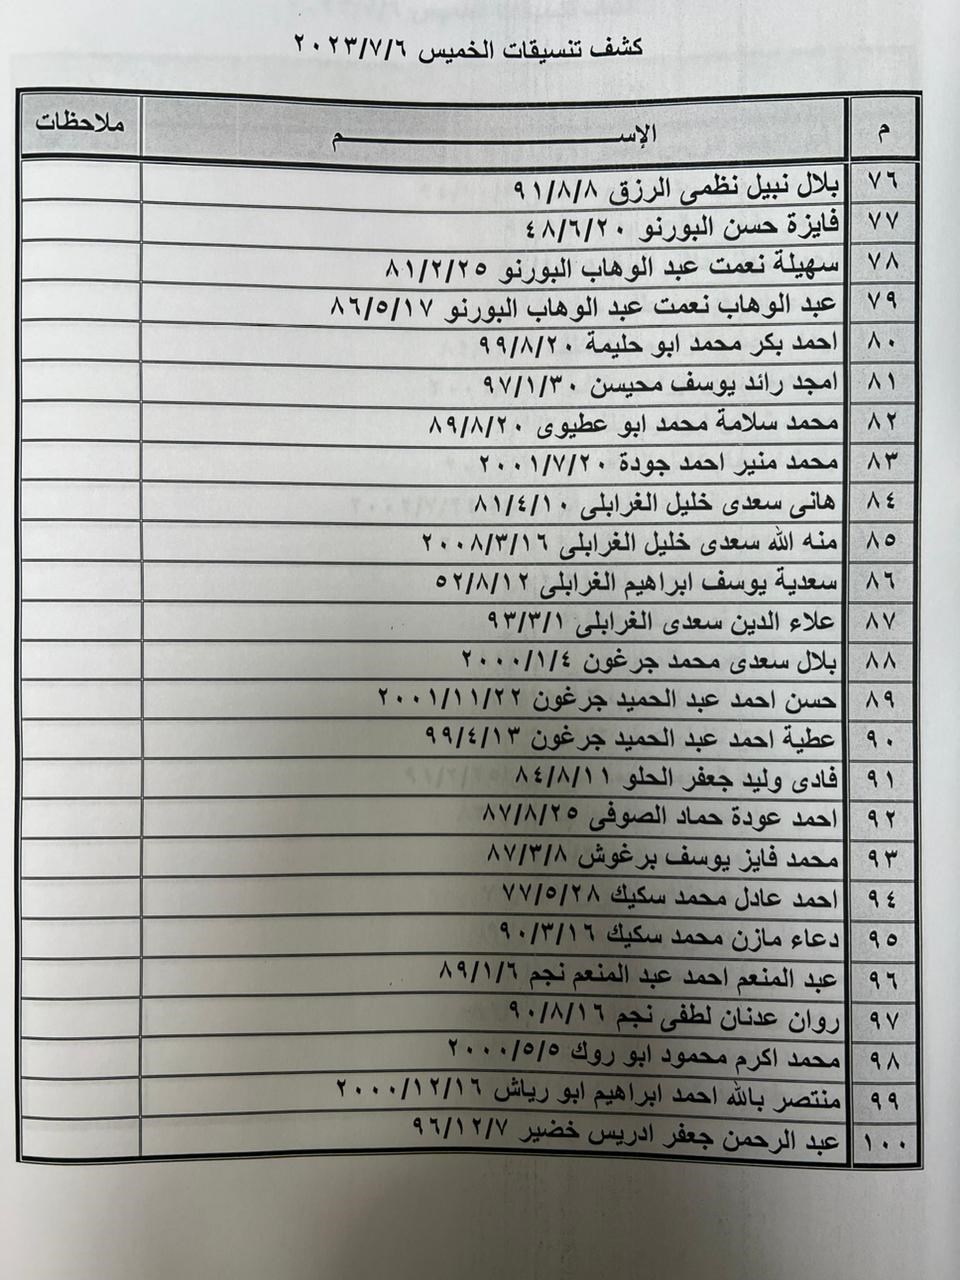 كشف تنسيقات الخميس ٢٠٢٣/٧/٦
م الإســـــــــــــم ملاحظات
٧٦ بلال نبيل نظمى الرزق ٩١/٨/٨
٧٧ فايزة حسن البورنو ٤٨/٦/٢٠
٧٨ سهيلة نعمت عبد الوهاب البورنو ٨١/٢/٢٥
٧٩ عبد الوهاب نعمت عبد الوهاب البورنو ٨٦/٥/١٧
٨٠ احمد بكر محمد ابو حليمة ٩٩/٨/٢٠
٨١ امجد رائد يوسف محيسن ٩٧/١/٣٠
٨٢ محمد سلامة محمد ابو عطيوى ٨٩/٨/٢٠
٨٣ محمد منير احمد جودة ٢٠٠١/٧/٢٠
٨٤ هانى سعدى خليل الغرابلى ٨١/٤/١٠
٨٥ منه الله سعدى خليل الغرابلى ٢٠٠٨/٣/١٦
٨٦ سعدية يوسف ابراهيم الغرابلى ٥٢/٨/١٢
٨٧ علاء الدين سعدى الغرابلى ٩٣/٣/١
٨٨ بلال سعدى محمد جرغون ٢٠٠٠/١/٤
٨٩ حسن احمد عبد الحميد جرغون ٢٠٠١/١١/٢٢
٩٠ عطية احمد عبد الحميد جرغون ٩٩/٤/١٣
٩١ فادى وليد جعفر الحلو ٨٤/٨/١١
٩٢ احمد عودة حماد الصوفى ٨٧/٨/٢٥
٩٣ محمد فايز يوسف برغوش ٨٧/٣/٨
٩٤ احمد عادل محمد سكيك ٧٧/٥/٢٨
٩٥ دعاء مازن محمد سكيك ٩٠/٣/١٦
٩٦ عبد المنعم احمد عبد المنعم نجم ٨٩/١/٦
٩٧ روان عدنان لطفى نجم ٩٠/٨/١٦
٩٨ محمد اكرم محمود ابو روك ٢٠٠٠/٥/٥
٩٩ منتصر بالله احمد ابراهيم ابو رياش ٢٠٠٠/١٢/١٦
١٠٠ عبد الرحمن جعفر ادريس خضير ٩٦/١٢/٧